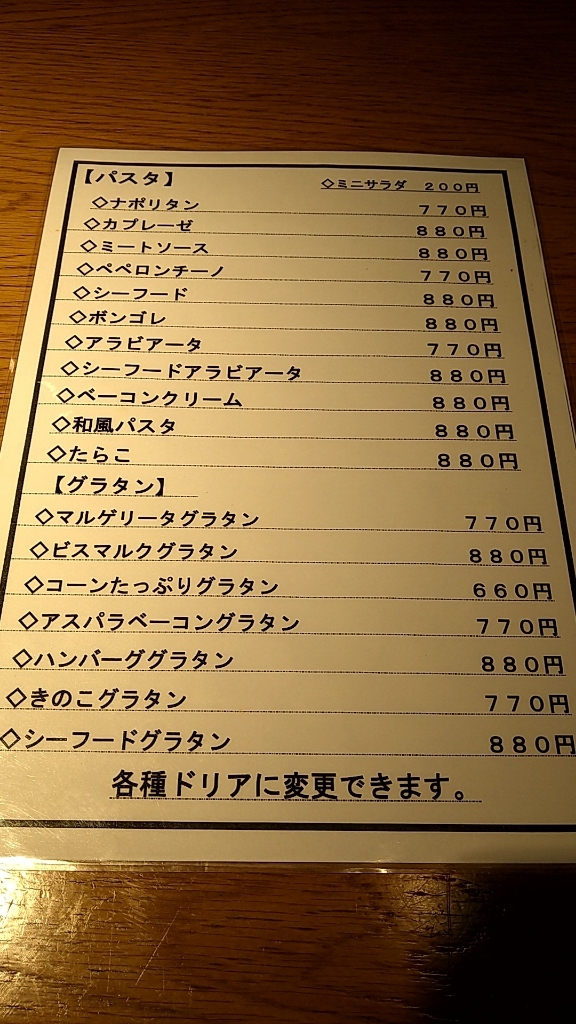 【パスタ】 ◇ミニサラダ ２００円
◇ナポリタン ７７０円
◇カプレーゼ ８８０円
◇ミートソース ８８０円
◇ペペロンチーノ ７７０円
◇シーフード ８８０円
◇ボンゴレ ８８０円
◇アラビアータ ７７０円
◇シーフードアラビアータ ８８０円
◇ベーコンクリーム ８８０円
◇和風パスタ ８８０円
◇たらこ ８８０円
【グラタン】
◇マルゲリータグラタン ７７０円
◇ビスマルクグラタン ８８０円
◇コーンたっぷりグラタン ６６０円
◇アスパラベーコングラタン ７７０円
◇ハンバーググラタン ８８０円
◇きのこグラタン ７７０円
◇シーフードグラタン ８８０円
各種ドリアに変更できます。